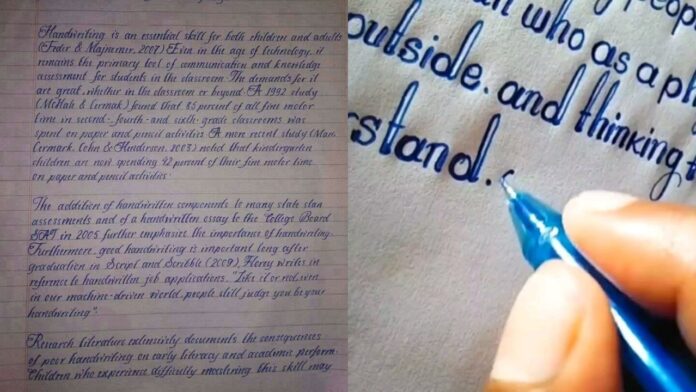 Handwriting is an essential skill for both children and adults
(Feder & Majnemer, 2007) Even in the age of technology, it
remains the primary tool of communication and knowledge
assessment for students in the classroom. The demands for it
are great, whether in the classroom or beyond. A 1992 study
(McHale & Cermak) found that 85 percent of all fine motor
time in second-, fourth- and sixth-grade classrooms was
spent on paper and pencil activities. A more recent study (Marr,
Cermark, Cohn & Henderson, 2003) noted that kindergarten
children are now spending 42 percent of their fine motor time
on paper and pencil activities.
The addition of handwritten components to many state stan
assessments and of a handwritten essay to the College Board
SAT in 2005 further emphasize the importance of handwriting.
Furthermore, good handwriting is important long after
graduation in Script and Scribble (2009), Florey writes in
reference to handwritten job applications, "Like it or not, even
in our machine-driven world, people still judge you by your
handwriting".
Research literature extensively documents the consequences
of poor handwriting on early literacy and academic perform-
Children who experience difficulty mastering this skill may
peop
who as a ph
outside. and thinking
stand.